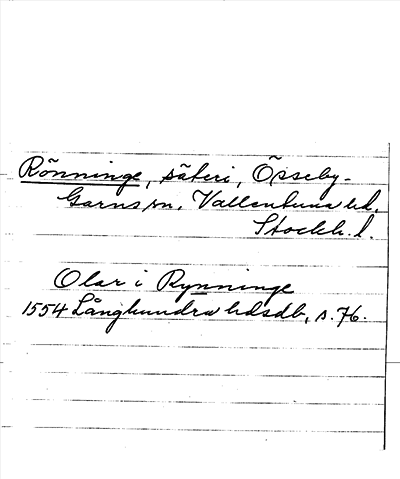 Rönninge, säteri, Össeby-
Garns sn, Vallentuna hd,
Stockh. l.
Olar i Rynninge
1554 Långhundra hdsdb, s. 76.